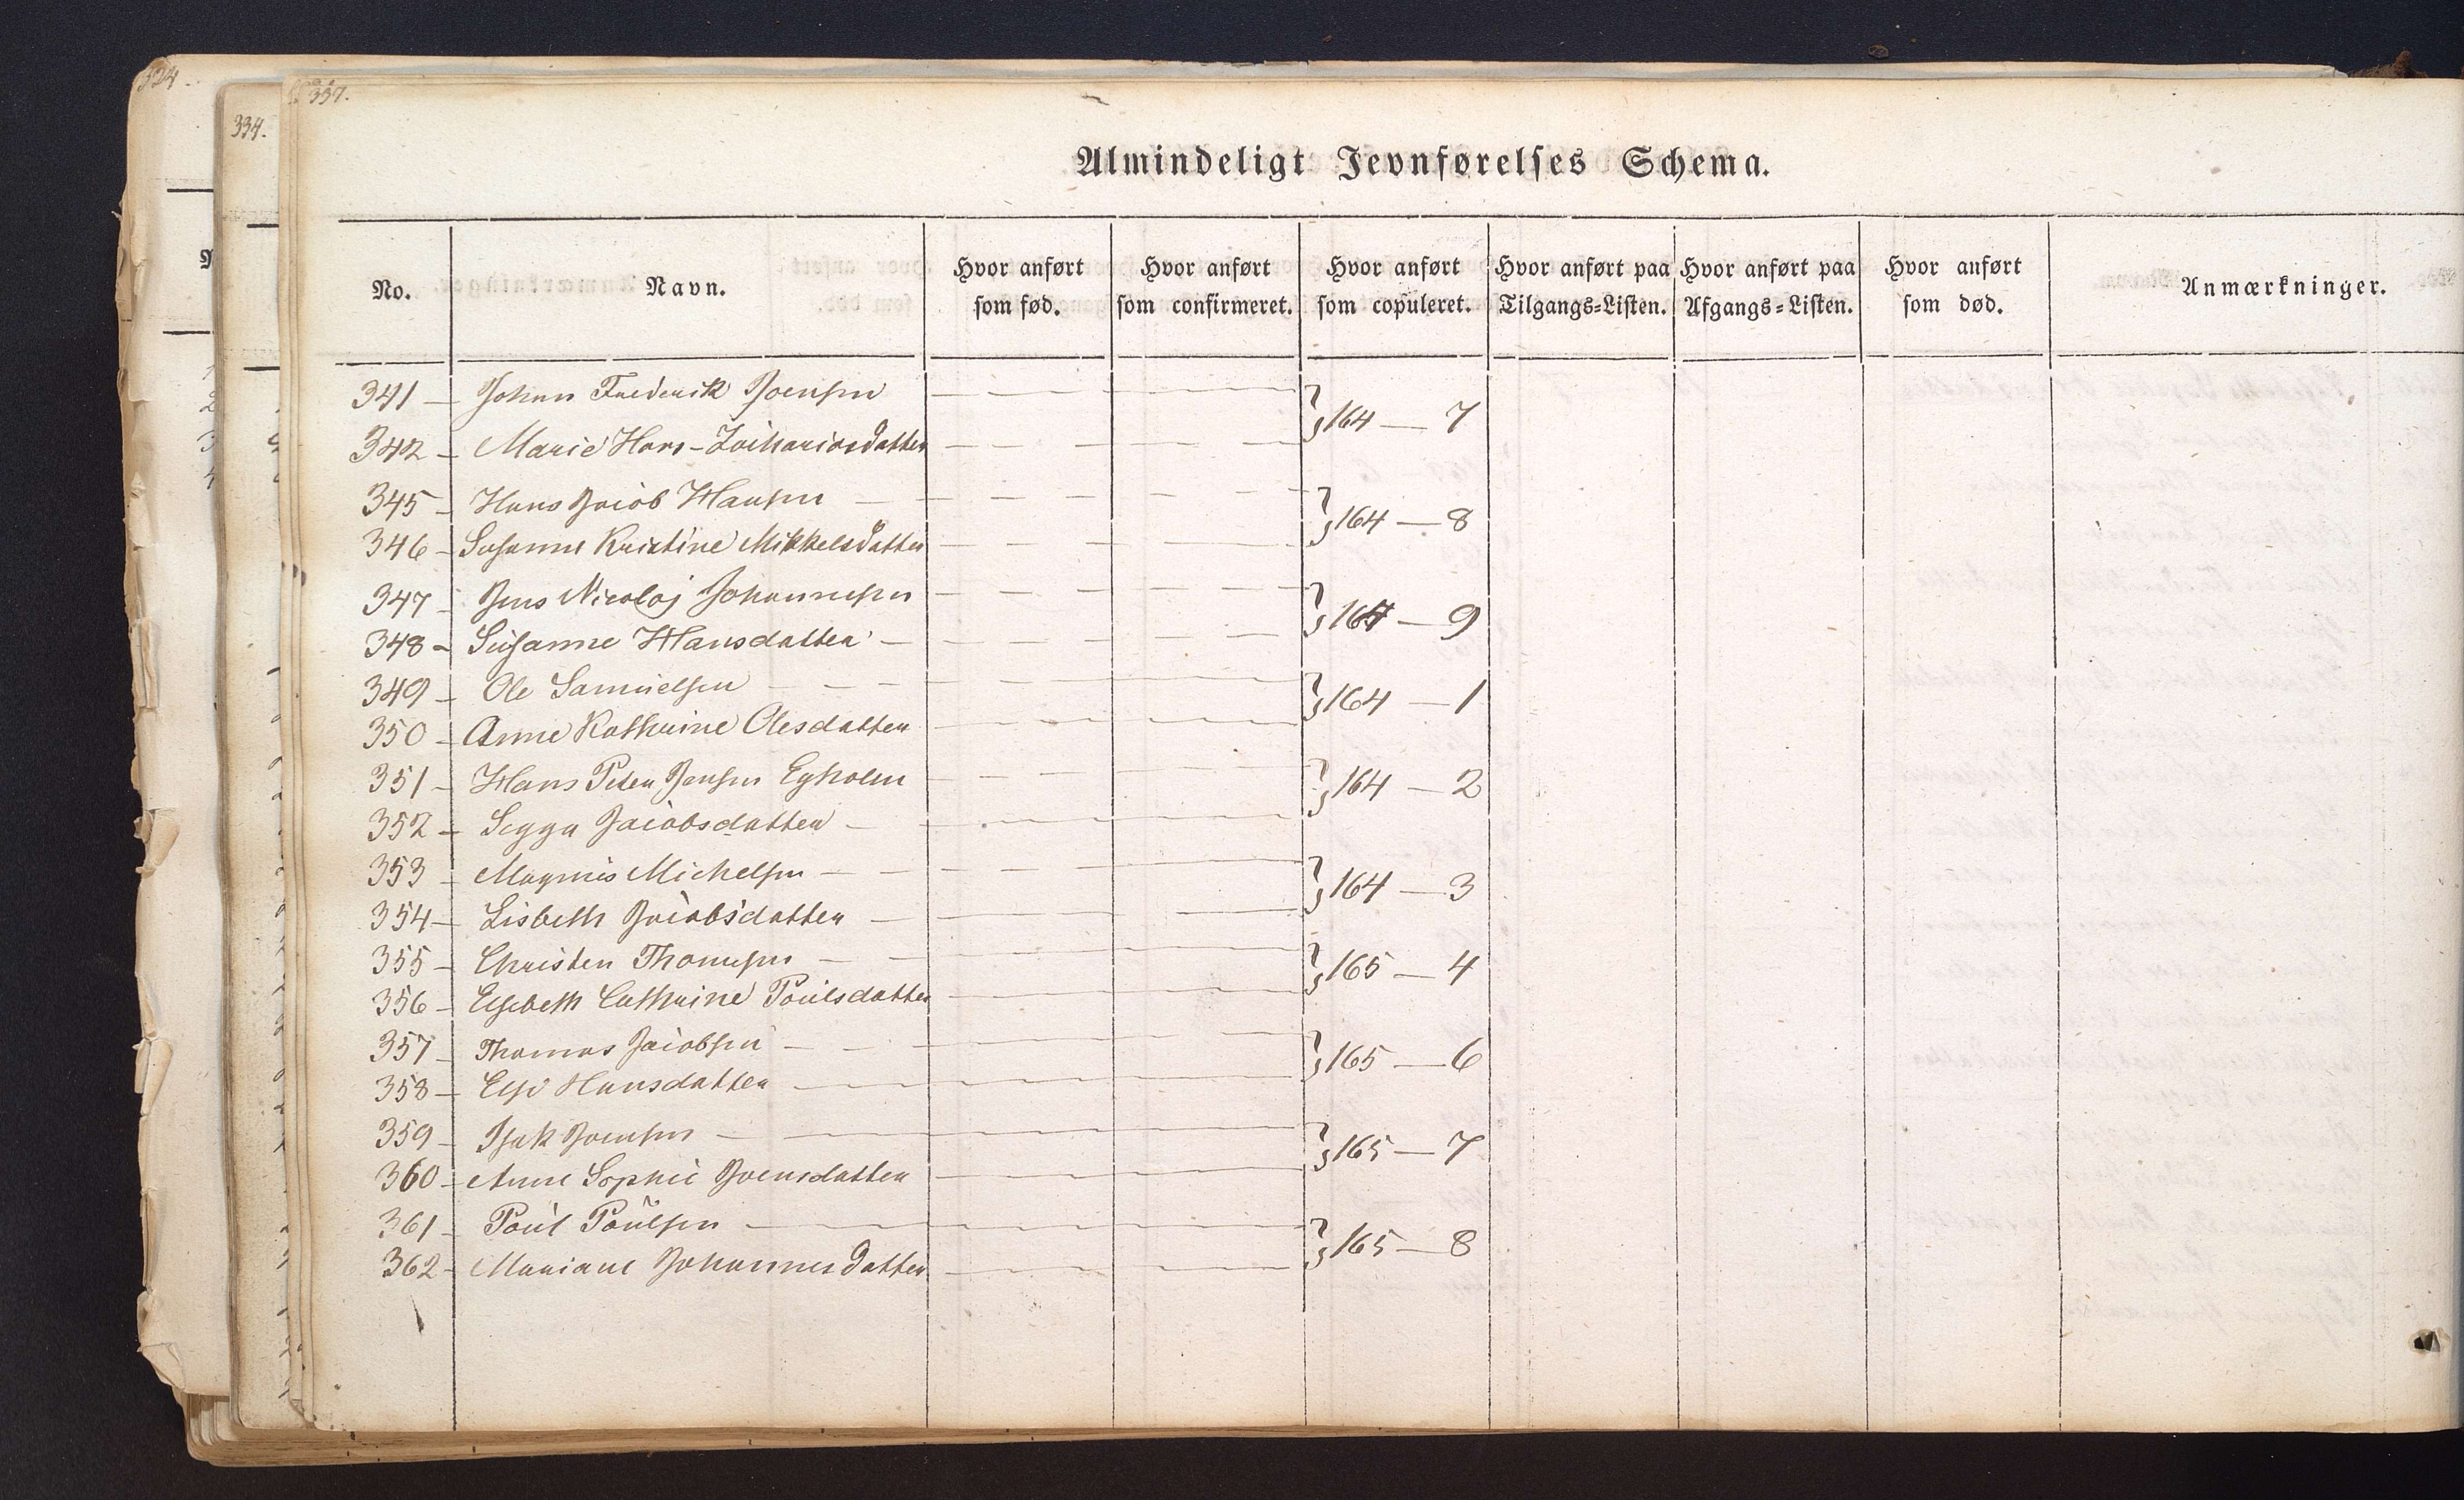 324.
334.
337.
Almindeligt Jevnførelses Schema.
No. Navn. Hvor anført som fød. Hvor anført som confirmeret. Hvor anført som copuleret. Hvor anført paa Tilgangs=Listen. Hvor anført paa Afgangs=Listen. Hvor anført som død. Anmærkninger.
341 — Johan Frederik Joensen — — — — } 164 — 7
342 — Marie Hans-Zachariasdatter — — — —
345 — Hans Jacob Hansen — — — — } 164 — 8
346 — Susanne Kristine Mikkelsdatter — — — —
347 — Jens Nicolaj Johannesen — — — — } 164 — 9
348 — Susanne Hansdatter — — — — —
349 — Ole Samuelsen — — — — — } 164 — 1
350 — Anne Kathrine Olesdatter — — — —
351 — Hans Peter Jensen Egholm — — — — } 164 — 2
352 — Sigga Jacobsdatter — — — — —
353 — Magnus Michelsen — — — — — } 164 — 3
354 — Lisbeth Jacobsdatter — — — — —
355 — Christen Thomesen — — — — — } 165 — 4
356 — Elsebeth Cathrine Poulsdatter — — — —
357 — Thomas Jacobsen — — — — — } 165 — 6
358 — Else Hansdatter — — — — —
359 — Isak Joensen — — — — — } 165 — 7
360 — Anne Sophie Joensdatter — — — —
361 — Poul Poulsen — — — — — } 165 — 8
362 — Mariane Johannesdatter — — — —